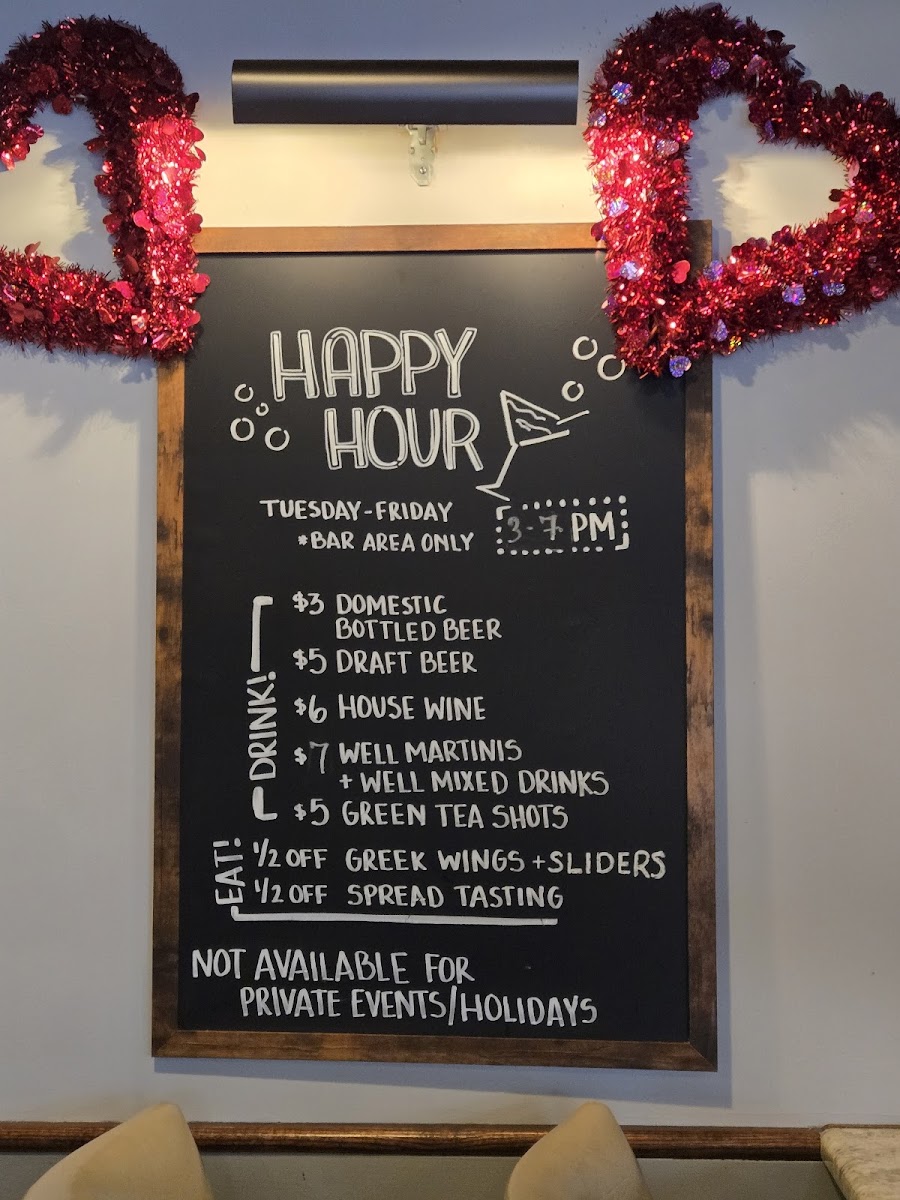 HAPPY
HOUR
TUESDAY-FRIDAY
*BAR AREA ONLY
3-7 PM
DRINK!
$3 DOMESTIC
BOTTLED BEER
$5 DRAFT BEER
$6 HOUSE WINE
$7 WELL MARTINIS
+ WELL MIXED DRINKS
$5 GREEN TEA SHOTS
EAT!
1/2 OFF GREEK WINGS + SLIDERS
1/2 OFF SPREAD TASTING
NOT AVAILABLE FOR
PRIVATE EVENTS/HOLIDAYS